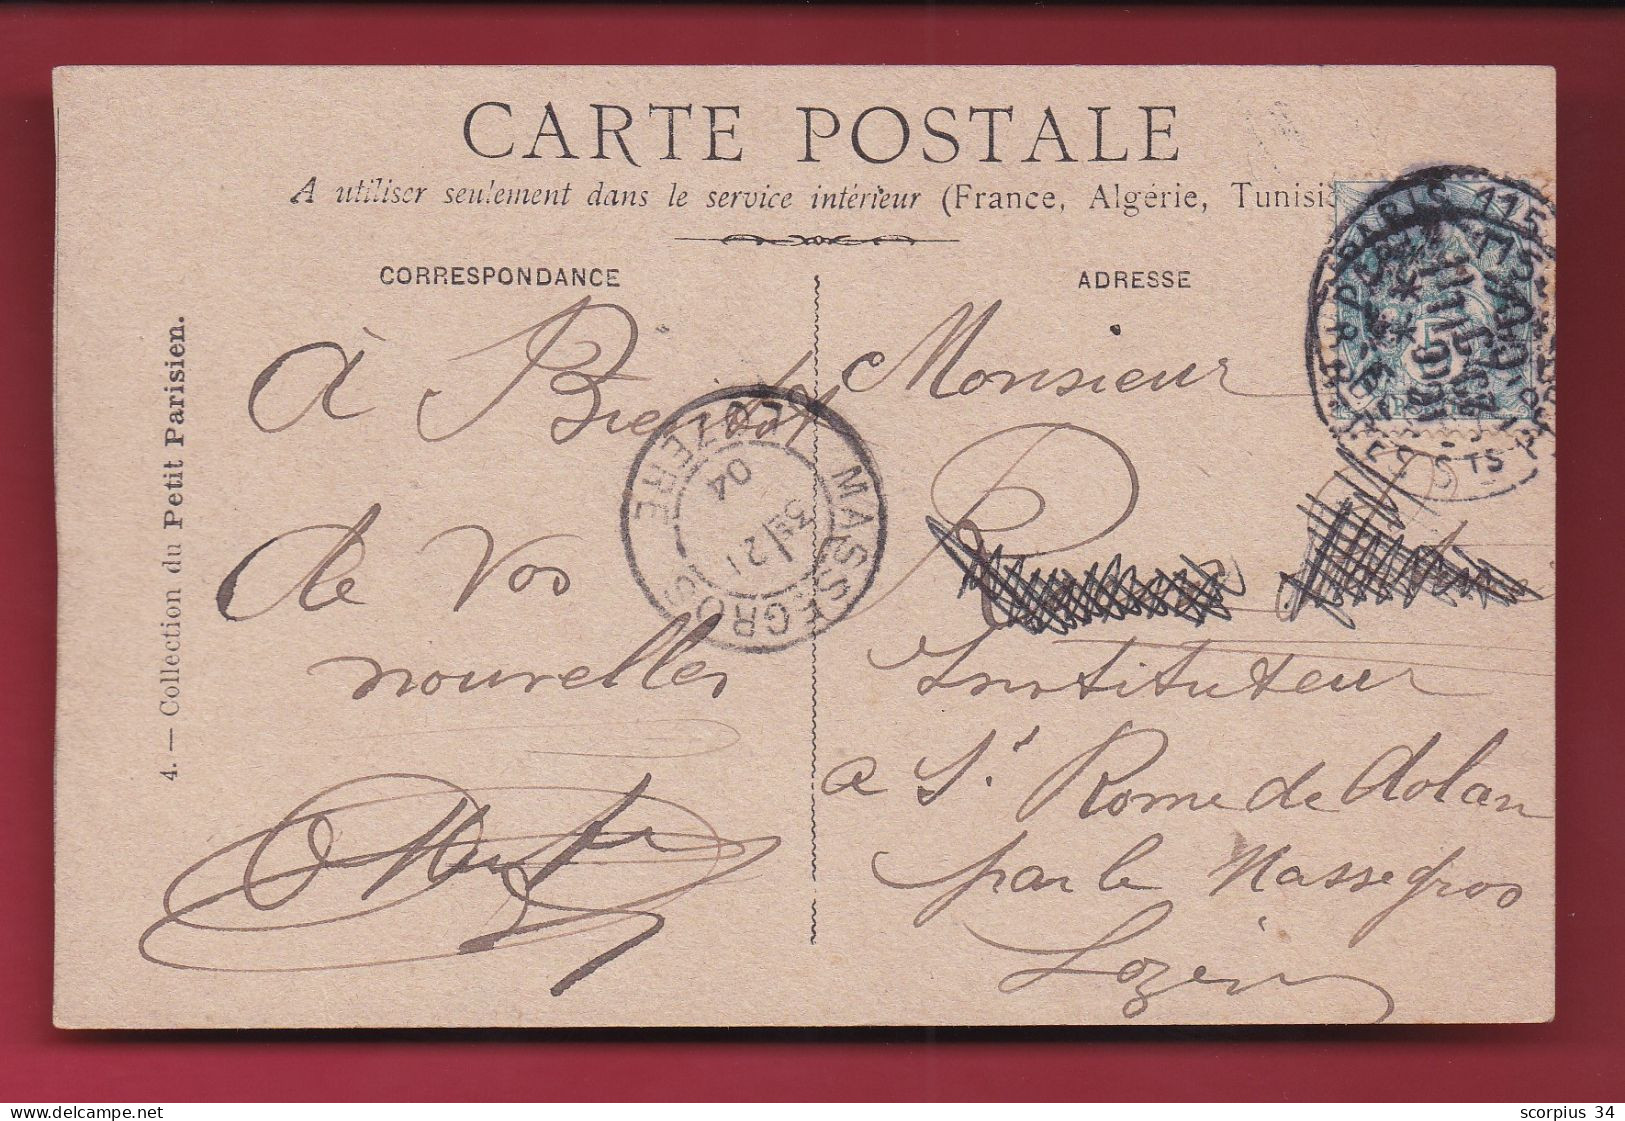 CARTE POSTALE
A utiliser seulement dans le service intérieur (France, Algérie, Tunisi
CORRESPONDANCE
ADRESSE
4. — Collection du Petit Parisien.
à Bientôt
de vos
nouvelles
Monsieur
Instituteur
a St Rome de dolan
par le Massegros
Lozère
MASSEGROS
LOZERE
21
04
PARIS 115
delcampe.net
scorpius 34